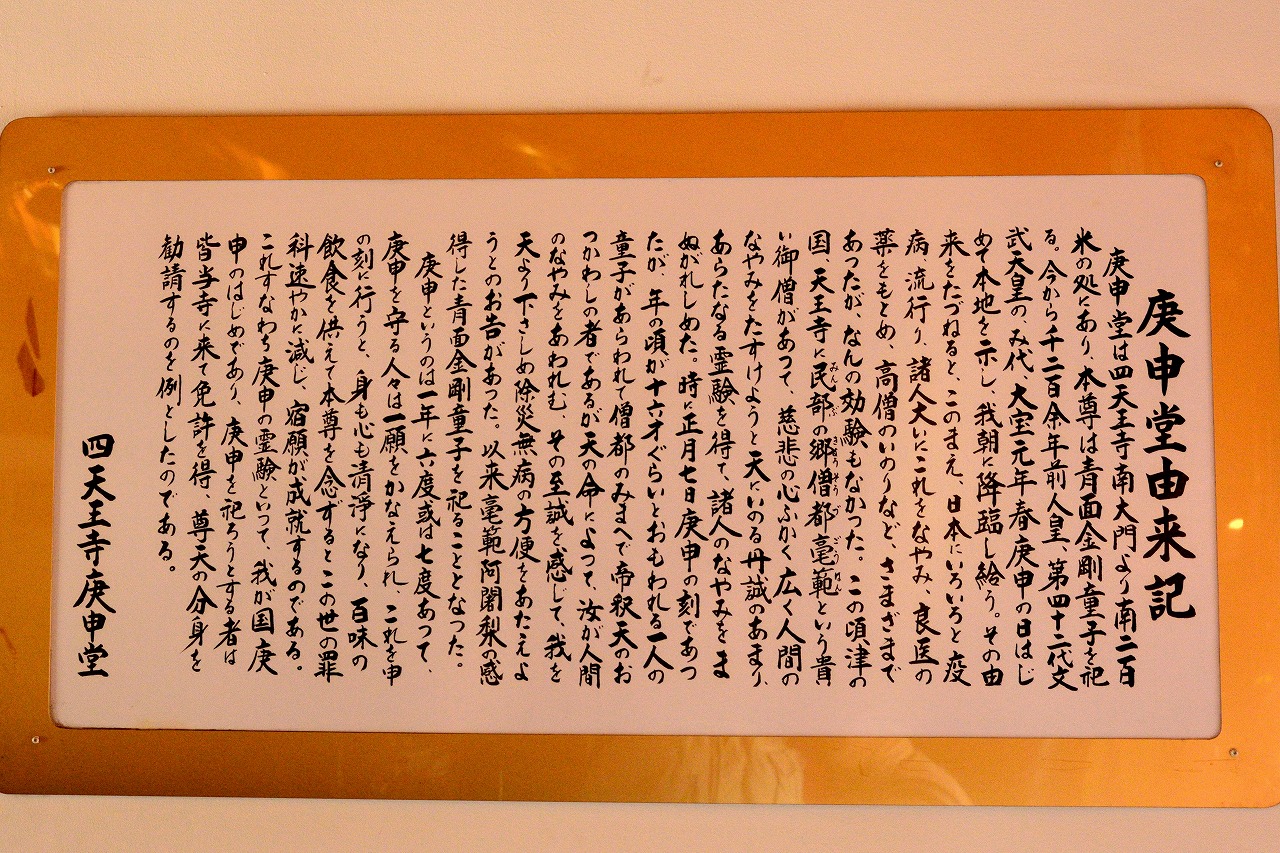 庚申堂由来記
庚申堂は四天王寺南大門より南二百
米の処にあり、本尊は青面金剛童子を祀
る。今から千二百余年前人皇、第四十二代文
武天皇の、み代、大宝元年春庚申の日はじ
めて本地を示し、我朝に降臨し給う。その由
来をたづねると、このまえ、日本にいろいろと疫
病、流行り、諸人大いにこれをなやみ、良医の
薬をもとめ、高僧のいのりなど、さまざまで
あつたが、なんの効験もなかつた。この頃、津の
国、天王寺に民部の郷僧都毫範という貴
い御僧があつて、慈悲の心ふかく広く人間の
なやみをたすけようと天にいのる丹誠のあまり、
あらたなる霊験を得て、諸人のなやみをま
ぬがれしめた。時に正月七日庚申の刻であつ
たが、年の頃が十六才ぐらいとおもわれる一人の
童子があらわれて僧都のみまへで帝釈天のお
つかわしの者であるが天の命によつて、汝が人間
のなやみをあわれむ、その至誠を感じて、我を
天より下さしめ除災無病の方便をあたえよ
うとのお告があつた。以来毫範阿闍梨の感
得した青面金剛童子を祀ることとなつた。
庚申というのは一年に六度或は七度あつて、
庚申を守る人々は一願をかなえられ、これを申
の刻に行うと、身も心も清浄になり、百味の
飲食を供えて本尊を念ずるとこの世の罪
科速やかに滅じ、宿願が成就するのである。
これすなわち庚申の霊験といつて、我が国庚
申のはじめであり、庚申を祀ろうとする者は
皆当寺に来て免許を得、尊天の分身を
勧請するのを例としたのである。
四天王寺庚申堂